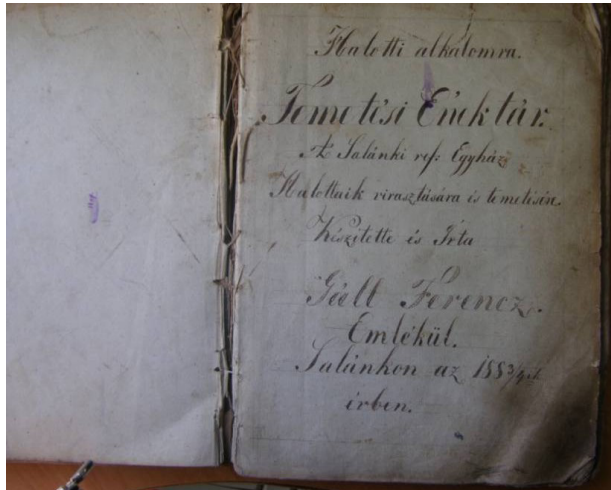 Halotti alkalomra.
Temetési Énektár.
Az Salánki ref: Egyház
Halottaik virasztására és temetésin.
Készitette és Irta
Gáll Ferencz.
Emlékül.
Salánkon az 1883/4ik
évben.